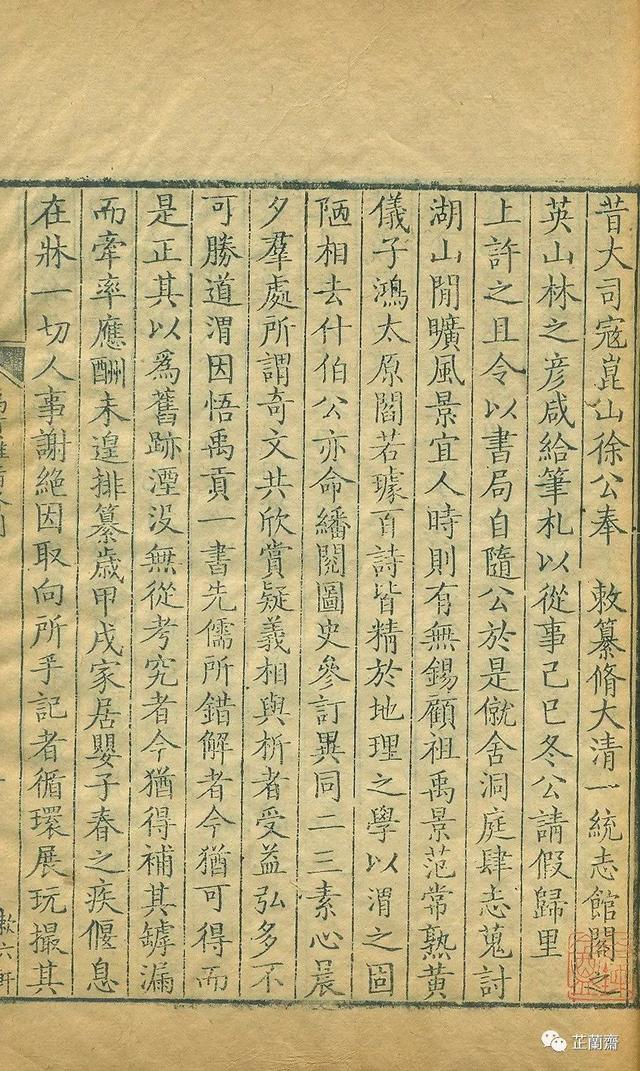 昔大司寇崑山徐公奉　敕纂脩大清一統志館閣之
英山林之彥咸給筆札以從事己巳冬公請假歸里
上許之且令以書局自隨公於是僦舍洞庭肆志蒐討
湖山閒曠風景宜人時則有無錫顧祖禹景范常熟黃
儀子鴻太原閻若璩百詩皆精於地理之學以渭之固
陋相去什伯公亦命繙閱圖史參訂異同二三素心晨
夕羣處所謂奇文共欣賞疑義相與析者受益弘多不
可勝道渭因悟禹貢一書先儒所錯解者今猶可得而
是正其以為舊跡湮沒無從考究者今猶得補其罅漏
而牽率應酬未遑排纂歲甲戌家居嬰子春之疾偃息
在牀一切人事謝絕因取向所手記者循環展玩撮其
六軒
芷蘭齋